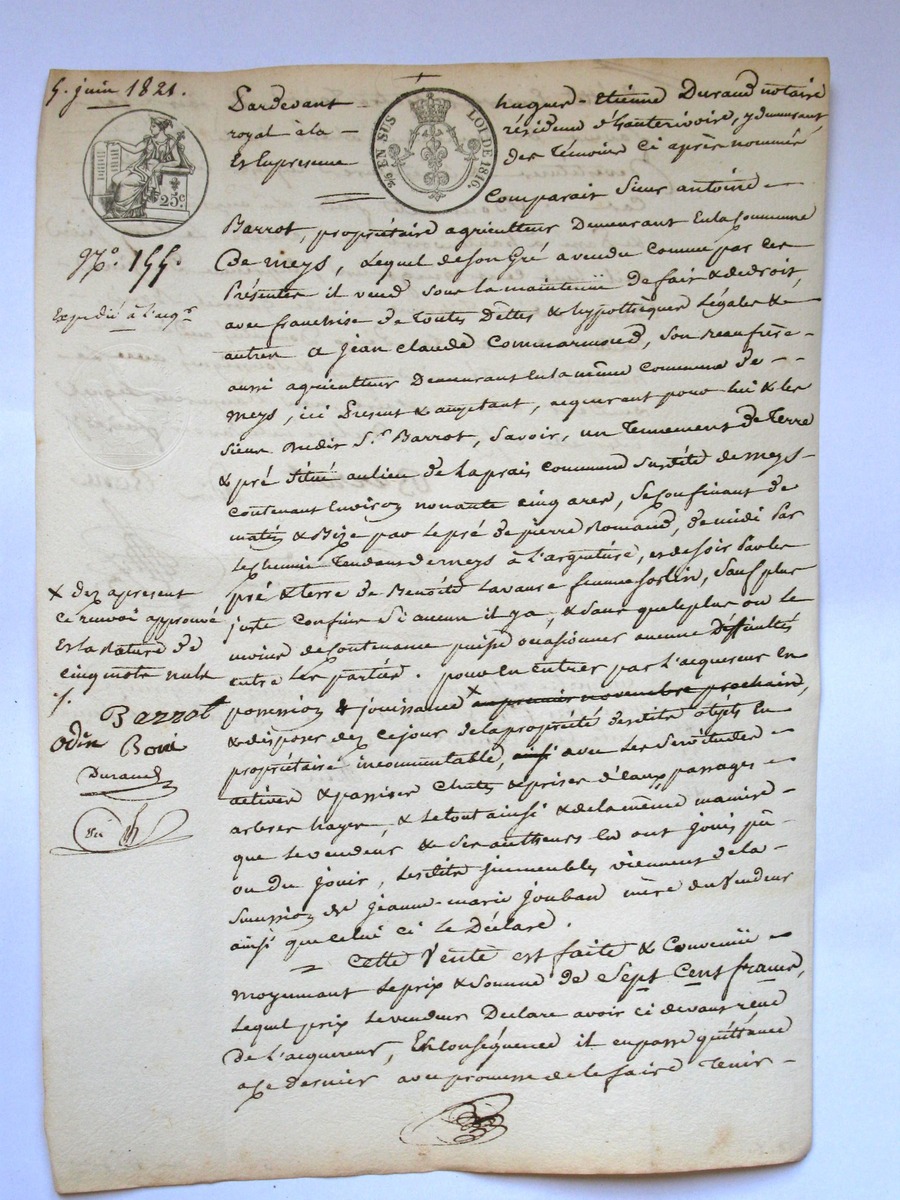 5. juin 1821.
25c
EN SUS LOI DE 1816.
N.º 155.
Expédié à l'acqr
Pardevant hugues-Etienne Durand notaire
royal à la résidence d'hauterivoire, y demeurant
Et la présence des témoins ci après nommés
Comparait Sieur antoine
Barrot, propriétaire agriculteur Demeurant En la Commune
De meys, Lequel de son Gré a vendu Comme par Ces
Présentes il vend sous la maintenüe de fait & de droit,
avec franchise de toutes Dettes & hypothèques Légales &
autres a jean claude Commarmond, son beaufrère
aussi agriculteur Demeurant En la même Commune de
meys, ici Présent & acceptant, acquerant pour lui & les
siens Dudit Sr Barrot, Savoir, un Tennement de Terre
& pré Situé au lieu de Laprais commune Susdite de meys
Contenant Environ nonante cinq ares, Se Confinant de
matin & Bize par le pré de pierre Romand, de midi Par
Le chemin Tendant de meys à L'argentière, et de soir Par les
pré & terre de Benoite Lavaure femme, Sauf plus
juste Confins Si aucun il y a, & Sans que le plus ou le
moins de Contenance puisse occasionner aucune Difficultés
entre Les parties. pour en Entrer par L'acquereur En
possession & jouissance × au premier novembre prochain,
& disposer dez Ce jour de la propriété desdits objets En
propriétaire incommutable, avec Les Servitudes
actives & passives Chutes & prises d'eaux passages
arbres hayes, & le tout ainsi & de la même manière
que Le vendeur & Ses autheurs En ont jouis pû
ou Du jouir, Lesdits jmmeubles viennent de la
Sucession de jeanne-marie jouban mère du Vendeur
ainsi que Celui ci Le Déclare.
Cette Vente est faite & Convenüe
moyennant Le prix & Somme de Sept Cent francs,
Lequel prix Le vendeur Declare avoir ci devant reçu
De l'acquereur, En Conséquence il en passe quittance
a Ce dernier avec promesse de le faire tenir
× dez apresent
Ce renvoi approuvé
Et la rature de
cinq mots nuls
Barrot
Odin
Durand